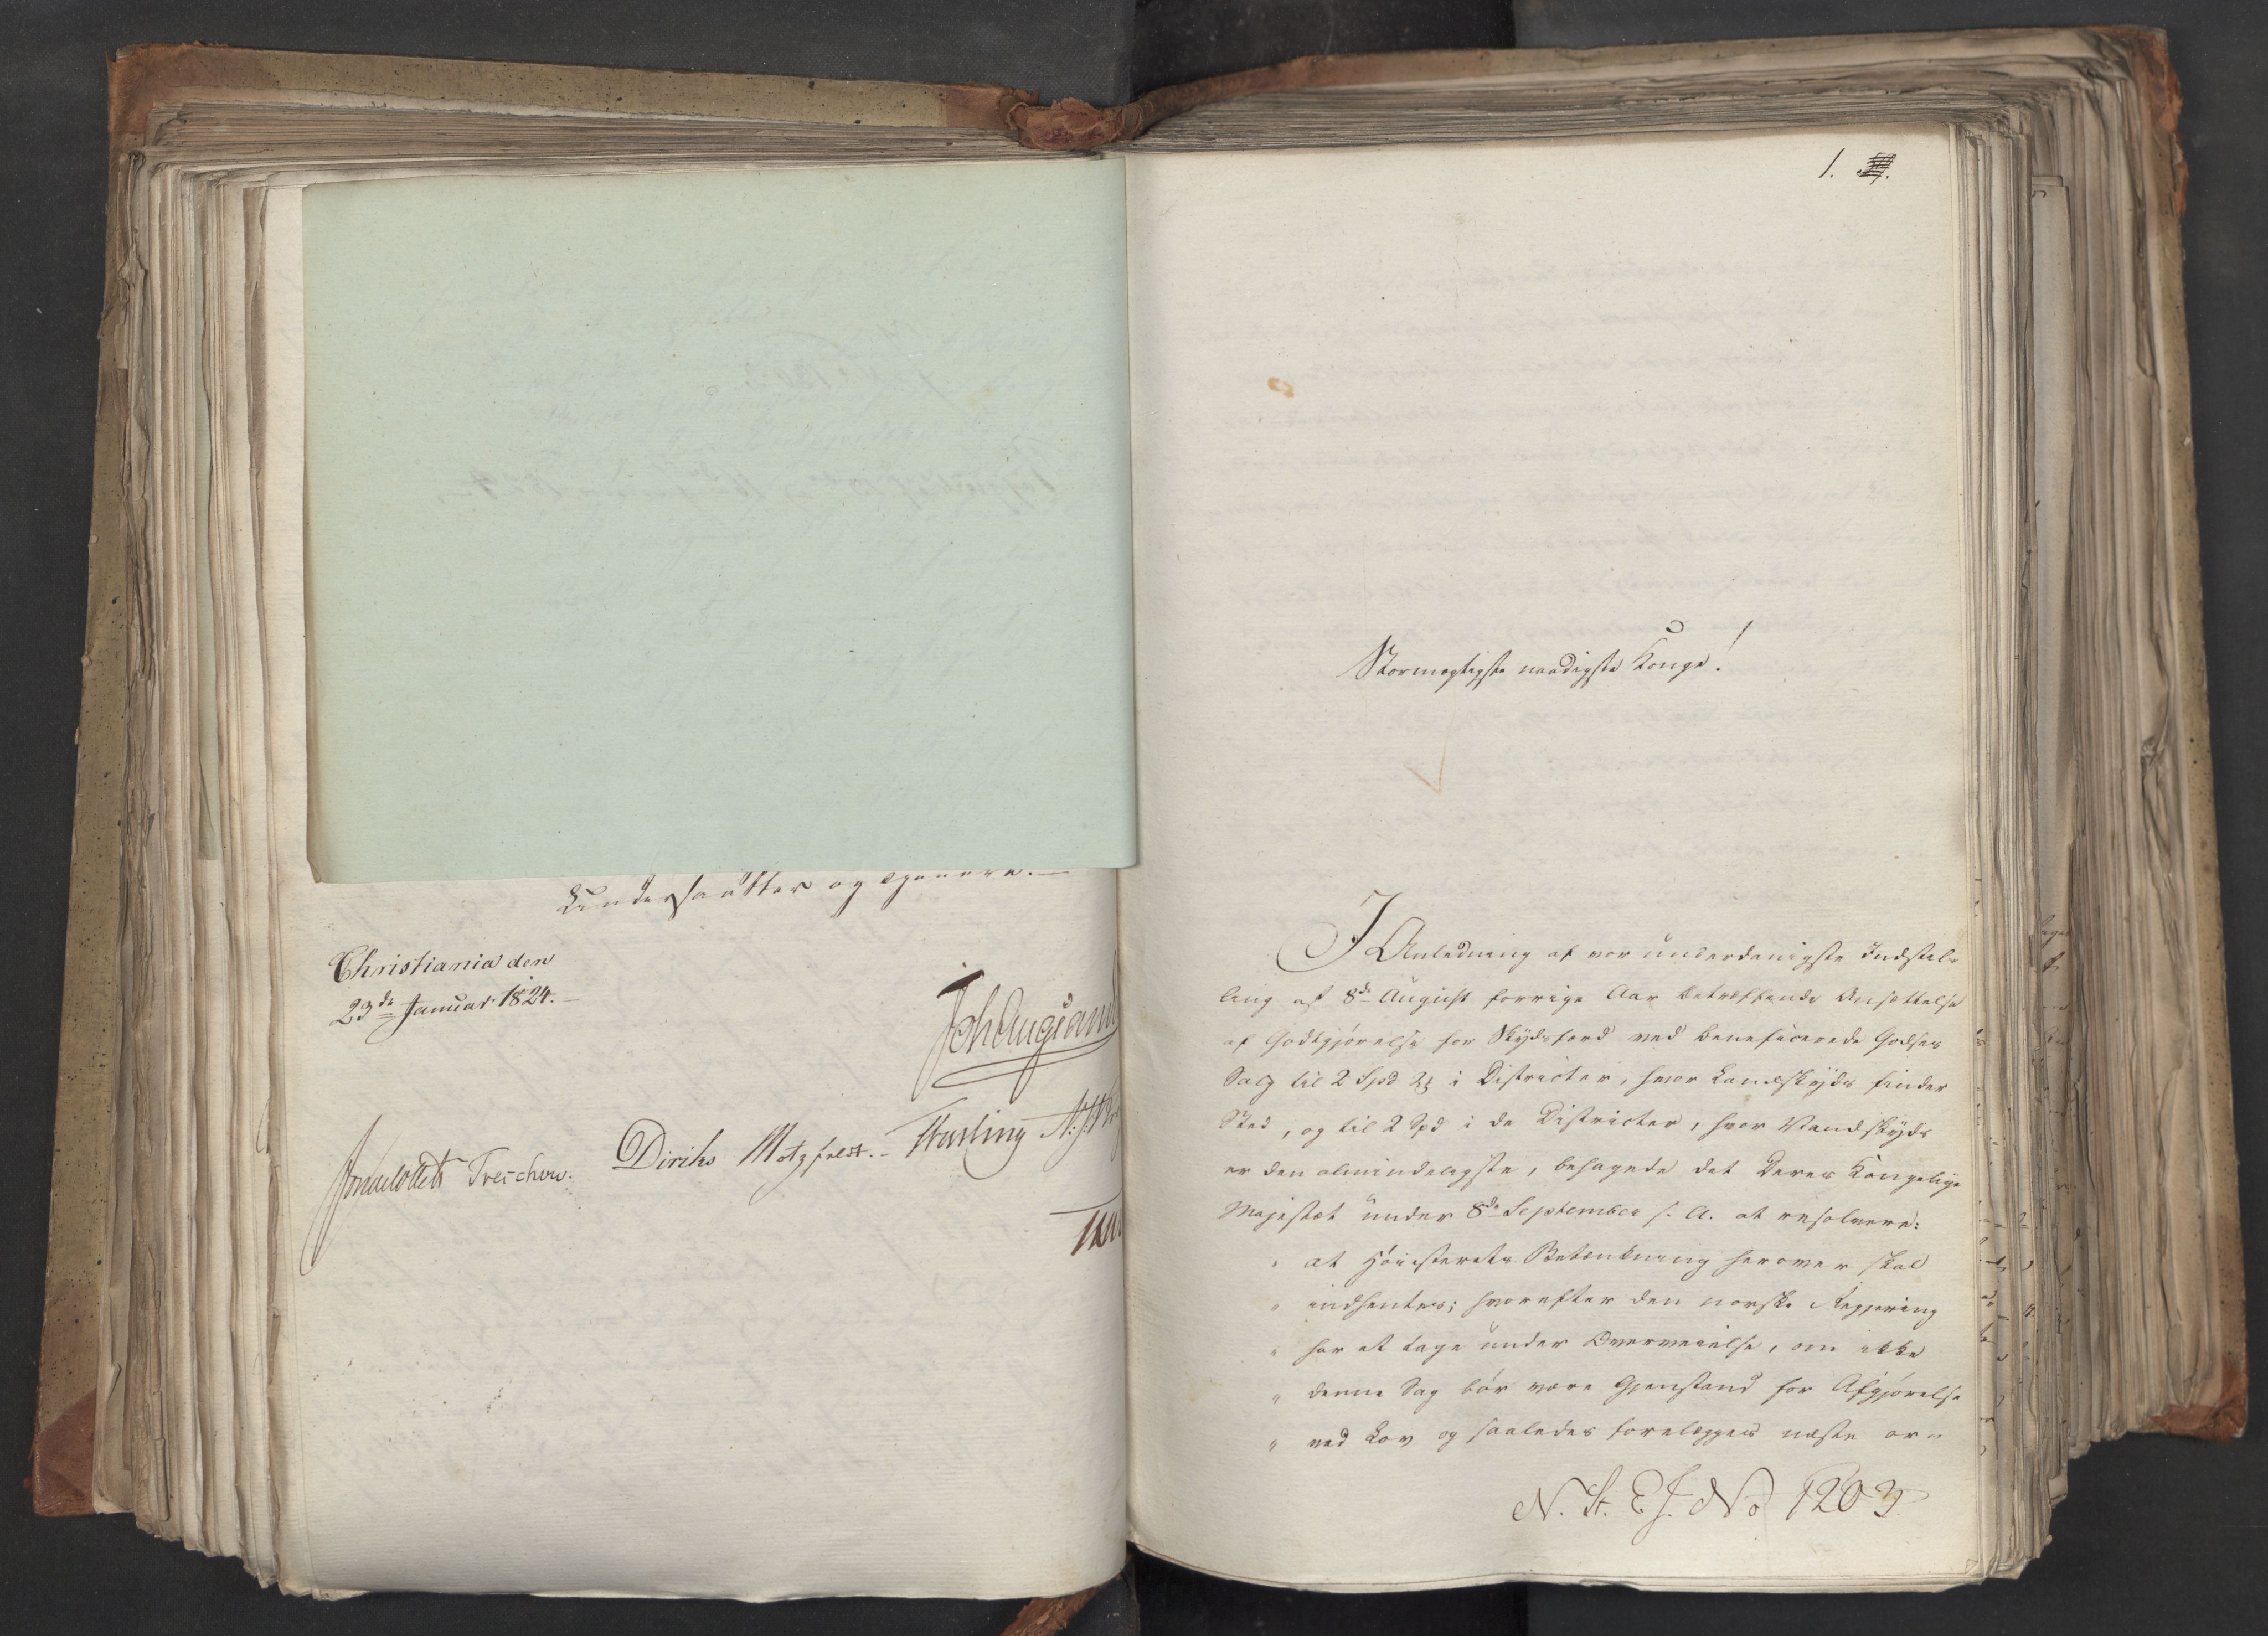 undersaatter og tjenere. —
Christiania den
23de Januar 1824. —
Sommerhielm Treschow.
Diriks Motzfeldt. - Fasting
1.
Stormægtigste naadigste Konge!
I Anledning af vor underdanigste Indstil-
ling af 8de August forrige Aar betræffende Ansættelse
af Godtgjørelse for Skydsfærd ved beneficerede Godses
Salg til 2 Spd 24 ß i Districter, hvor Landskyds finder
Sted, og til 2 Spd i de Districter, hvor Vandskyds
er den almindeligste, behagede det Deres Kongelige
Majestæt under 8de September s. A. at resolvere:
" at Høiesterets Betænkning herover skal
" indhentes; hvorefter den norske Regjering
" har at tage under Overveielse, om ikke
" denne Sag bør være Gjenstand for Afgjørelse
" ved Lov og saaledes forelægges næste or-
N. St. E J. No 1203